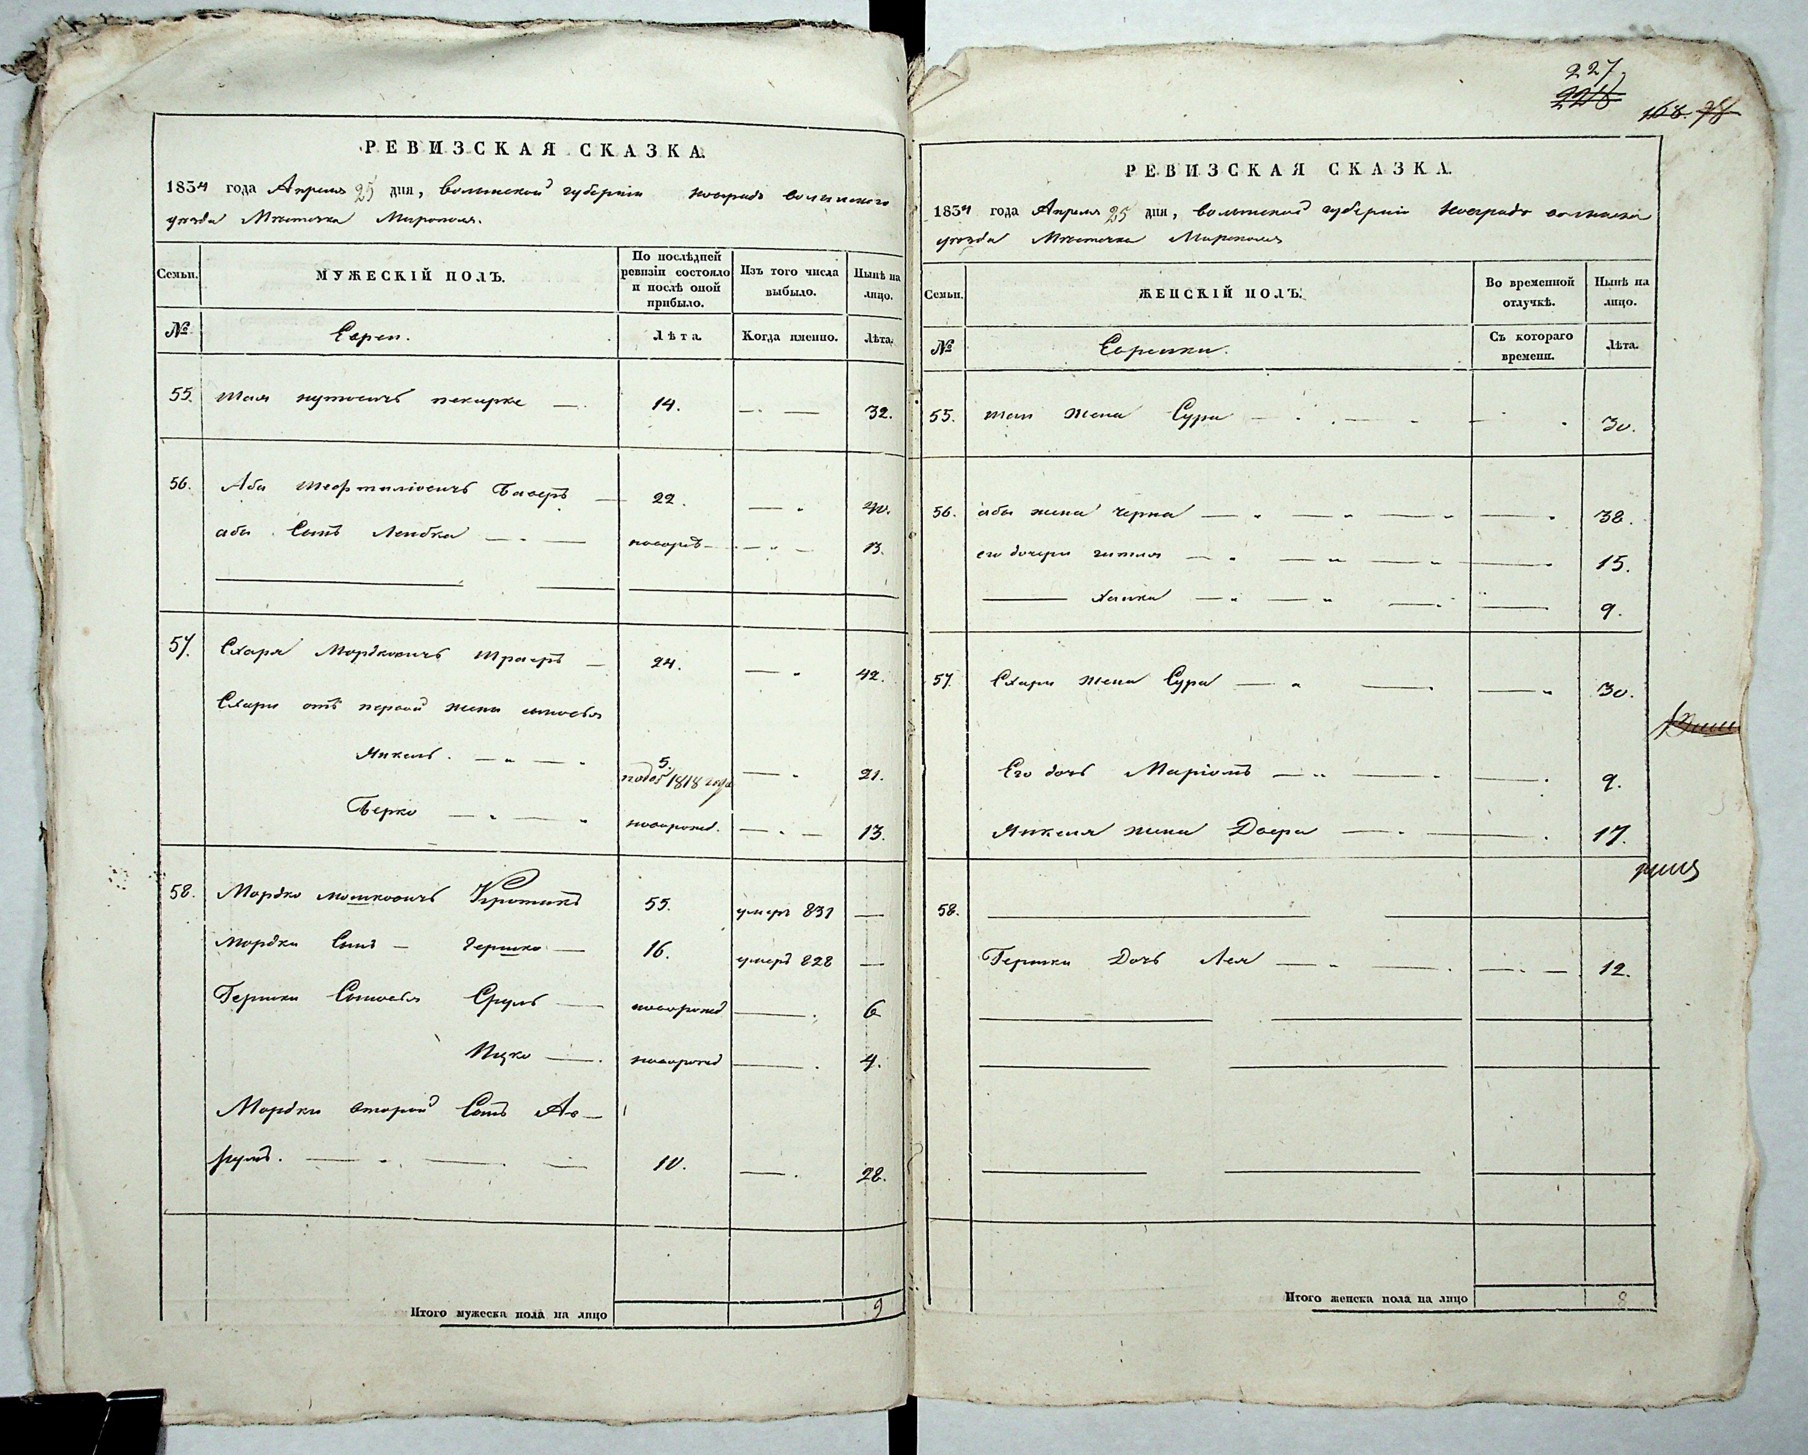 РЕВИЗСКАЯ СКАЗКА.
1834 года Апреля 25 дня, Волынской губернiи Новградъ волынского
уезда Мѣстечка Мирополя.
Семьи.
МУЖЕСКIЙ ПОЛЪ.
По послѣдней ревизiи состояло и послѣ оной прибыло.
Изъ того числа выбыло.
Нынѣ на лицо.
№
Евреи.
Лѣта.
Когда именно.
Лѣта.
55. Шая 14. 32.
56. Аба 22. 40.
аба Сынъ Лейбка новорожд 13.
57. Схаря Мордковичъ 24. 42.
Схари отъ первой жены сыновья
Янкель. 5. 1818 года 21.
Берко новорожд. 13.
58. Мордко Мошковичъ 55. умеръ 831 —
Мордки Сынъ — Гершко — 16. умеръ 828 —
Гершки Сыновья Сруль — новорожд 6
Ицко — новорожд 4.
Мордки второй Сынъ Ав-
румъ. 10. 28.
Итого мужеска пола на лицо 9
227.
168.
РЕВИЗСКАЯ СКАЗКА.
1834 года Апреля 25 дня, Волынской губернiи Новградъ
уезда Мѣстечка Мирополя
Семьи.
ЖЕНСКIЙ ПОЛЪ.
Во временной отлучкѣ.
Нынѣ на лицо.
№
Еврейки.
Съ котораго времени.
Лѣта.
55. Шаи жена Сура 30.
56. абы жена черна 38.
его дочери гитля 15.
Ханка 9.
57. Схари жена Сура 30.
Его дочь Марiомъ 9.
Янкеля жена Двера 17.
58.
Гершки Дочь Лея 12.
Итого женска пола на лицо 8